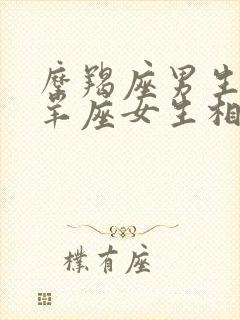 摩羯座男生
羊座女生相
樸有座